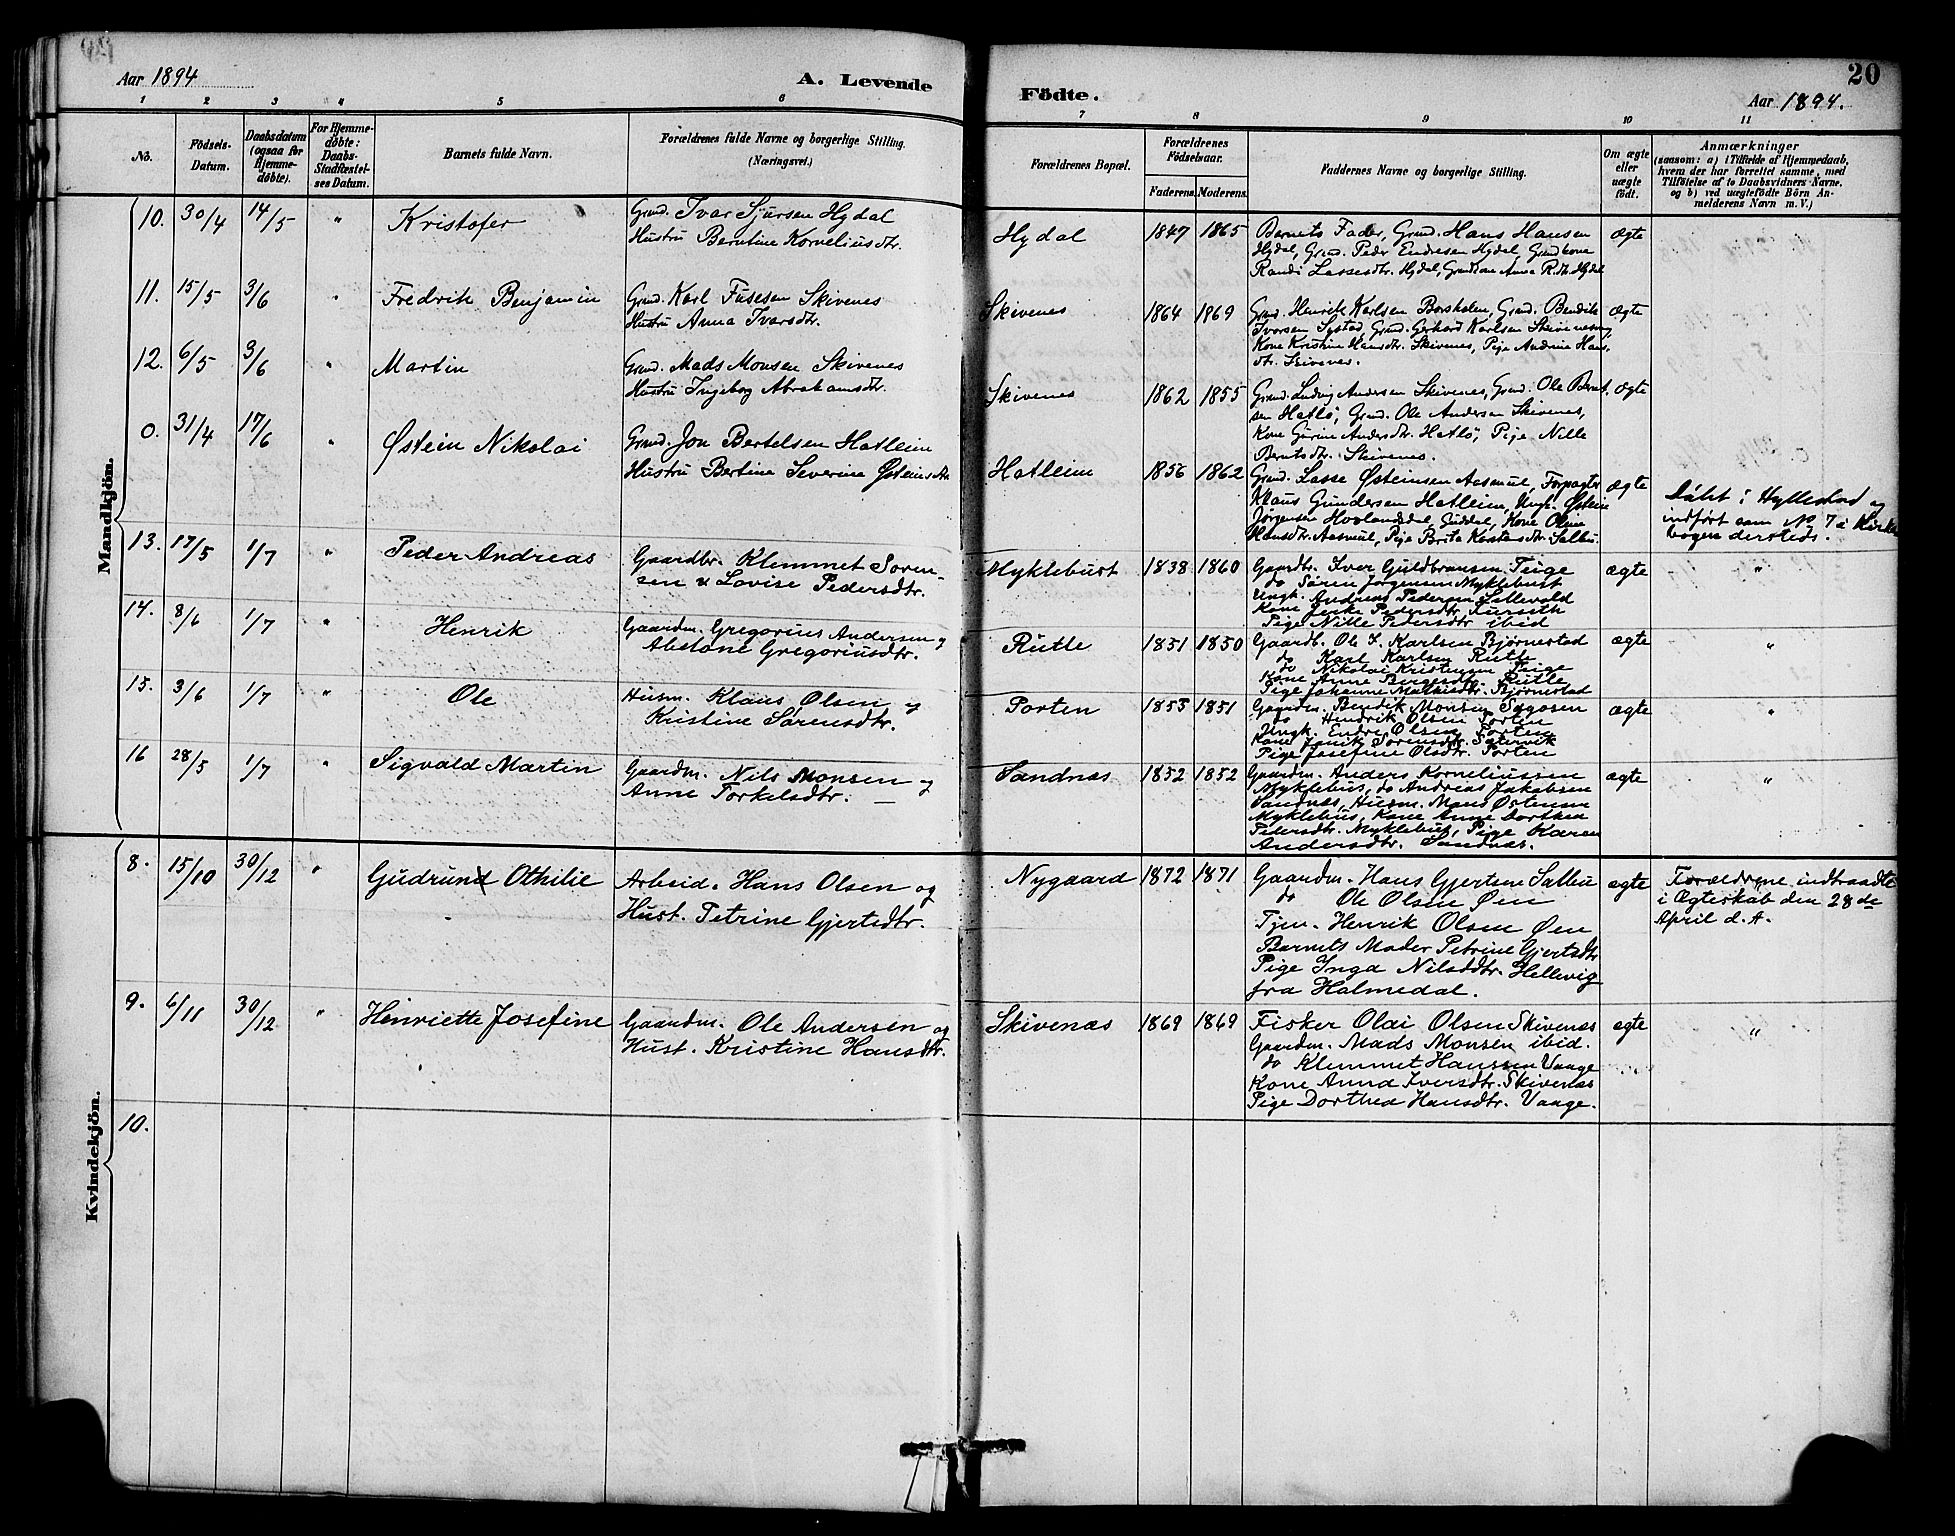 Aar 1894
A. Levende
Födte.
20
Aar 1894.
1 2 3 4 5 6 7 8 9 10 11
No.
Födsels-
Datum.
Daabsdatum
(ogsaa for
Hjemme-
döbte).
For Hjemme-
döbte:
Daabs-
Stadfæstel-
ses Datum.
Barnets fulde Navn.
Forældrenes fulde Navne og borgerlige Stilling.
(Næringsvei.)
Forældrenes Bopæl.
Forældrenes
Födselsaar.
Faderens. Moderens.
Faddernes Navne og borgerlige Stilling.
Om ægte
eller
uægte
födt.
Anmærkninger
(saasom: a) i Tilfælde af Hjemmedaab,
hvem der har forrettet samme, med
Tilföielse af to Daabsvidners Navne,
og b) ved uægtefödte Börn An-
melderens Navn m. V.)
Mandkjön.
10. 30/4 14/5 " Kristofer
Grmd. Ivar Sjursen Hydal
Hustru Berntine Korneliusdtr.
Hydal 1847 1865
Barnets Fader, Grmd. Hans Hansen
Hydal, Grmd. Peder Endresen Hydal, Grmdkone
Randi Lassesdtr. Hydal, Grmdkone Anna R.dtr. Hydal
Ægte
11. 15/5 3/6 " Fredrik Benjamin
Grmd. Karl Fusesen Skivenes
Hustru Anna Ivarsdtr.
Skivenes 1864 1869
Grmd. Henrik Karlsen Borsholen, Grmd. Bendik
Ivarsen Systad, Grmd. Gerhard Karlsen Skivenesøy
Kone Kristine Hansdtr. Skivenes, Pige Andrine Hans-
dtr. Skivenes.
Ægte
12. 6/5 3/6 " Martin
Grmd. Mads Monsen Skivenes
Hustru Ingebog Abrahamsdtr.
Skivenes 1862 1855
Grmd. Ludvig Andersen Skivenes, Grmd. Ole Bernt-
sen Hatlö, Grmd. Ole Andersen Skivenes,
Kone Gurine Andersdtr. Hatlö, Pige Nille
Berntsdtr. Skivenes.
ægte
0. 31/4 17/6 " Østein Nikolai
Grmd. Jon Bertelsen Hatleim
Hustru Bertine Severine Østeinsdtr
Hatleim 1856 1862
Grmd. Lasse Østeinsen Aasmul, Forpagter
Klaus Gundersen Hatleim, Ungk. Østein
Jørgensen Hovlandsdal, Guddal, Kone Oline
Hansdtr. Aasmul, Pige Brita Karstensdtr. Salbu.
ægte
Døbt i Hyllestad og
indført som No 7 i Kirke-
bogen dersteds.
13. 17/5 1/7 " Peder Andreas
Gaardbr. Klemmet Soren-
sen & Lovise Pedersdtr.
Myklebust 1838 1860
Gaardbr. Iver Guldbransen Teige
do Søren Jørgensen Myklebust
Ungk. Andreas Pedersen Sallevald
Kone Jenke Pedersdtr.
Pige Nille Pedersdtr ibid
ægte "
14. 8/6 1/7 " Henrik
Gaardm. Gregorius Andersen og
Abelone Gregoriusdtr.
Rutle 1851 1850
Gaardb. Ole I. Karlsen Bjørnestad
do Karl Karlsen Rutle
do Nikolai Kristensen Teige
Kone Anne Børgesdtr. Rutle
Pige Johanne Mathisdtr. Bjørnestad
ægte "
15. 3/6 1/7 " Ole
Husm. Klaus Olsen og
Kristine Sørensdtr.
Porten 1853 1851
Gaardm. Bendik Monsen Sygosen
do Hendrik Olsen Porten
Ungk. Endre Olsen Porten
Kone Jenik Sørensdtr. Sætervik
Pige Josefine Olsdtr. Porten
ægte "
16 28/5 1/7 " Sigvald Martin
Gaardm. Nils Monsen og
Anne Torkelsdtr. —
Sandnæs 1852 1852
Gaardm. Anders Korneliussen
Myklebus, do Andreas Jakobsen
Sandnæs, Husm. Mons Østensen
Myklebus, Kone Anne Dorthea
Pedersdtr. Myklebus, Pige Karen
Andersdtr. Sandnæs.
ægte "
Kvindekjön.
8. 15/10 30/12 " Gudrun Othilie
Arbeid. Hans Olsen og
Hust. Petrine Gjertsdtr.
Nygaard 1872 1871
Gaardm. Hans Gjertsen Salbu
do Ole Olsen Øen
Tjen. Henrik Olsen Øen
Barnets Moder Petrine Gjertsdtr
Pige Inga Nilsdtr. Hellevig
fra Holmedal.
ægte
Forældrene indtraadte
i Ægteskab den 28de
April d. A.
9. 6/11 30/12 " Henriette Josefine
Gaardm. Ole Andersen og
Hust. Kristine Hansdtr.
Skivenæs 1869 1869
Fisker Olai Olsen Skivenæs
Gaardm. Mads Monsen ibid.
do Klemmet Hanssen Vaage
Kone Anna Iversdtr. Skivenæs
Pige Dorthea Hansdtr. Vaage.
ægte "
10.